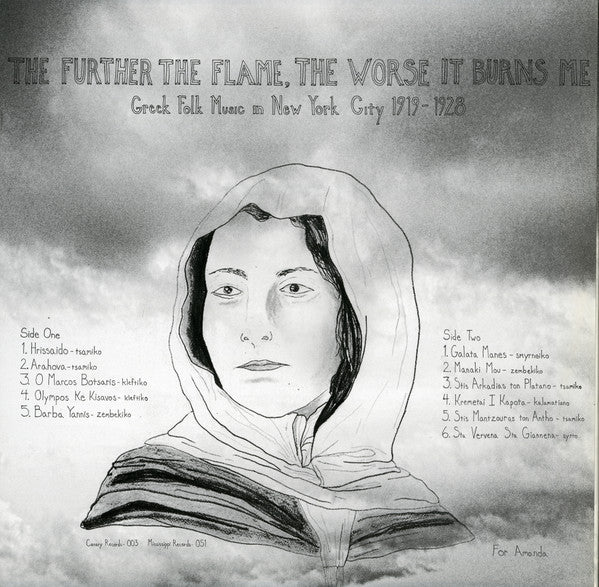 THE FURTHER THE FLAME, THE WORSE IT BURNS ME
Greek Folk Music in New York City 1919-1928
Side One
1. Hrissaido - tsamiko
2. Arahova - tsamiko
3. O Marcos Botsaris - kleftiko
4. Olympos Ke Kisavos - kleftiko
5. Barba Yannis - zembekiko
Side Two
1. Galata Manes - smyrneiko
2. Manaki Mou - zembekiko
3. Stis Arkadias ton Platano - tsamiko
4. Kremetai I Kapota - kalamatiano
5. Stis Mantzouras ton Antho - tsamiko
6. Sta Vervena Sta Giannena - syrto
Canary Records - 003 Mississippi Records - 051
For Amanda